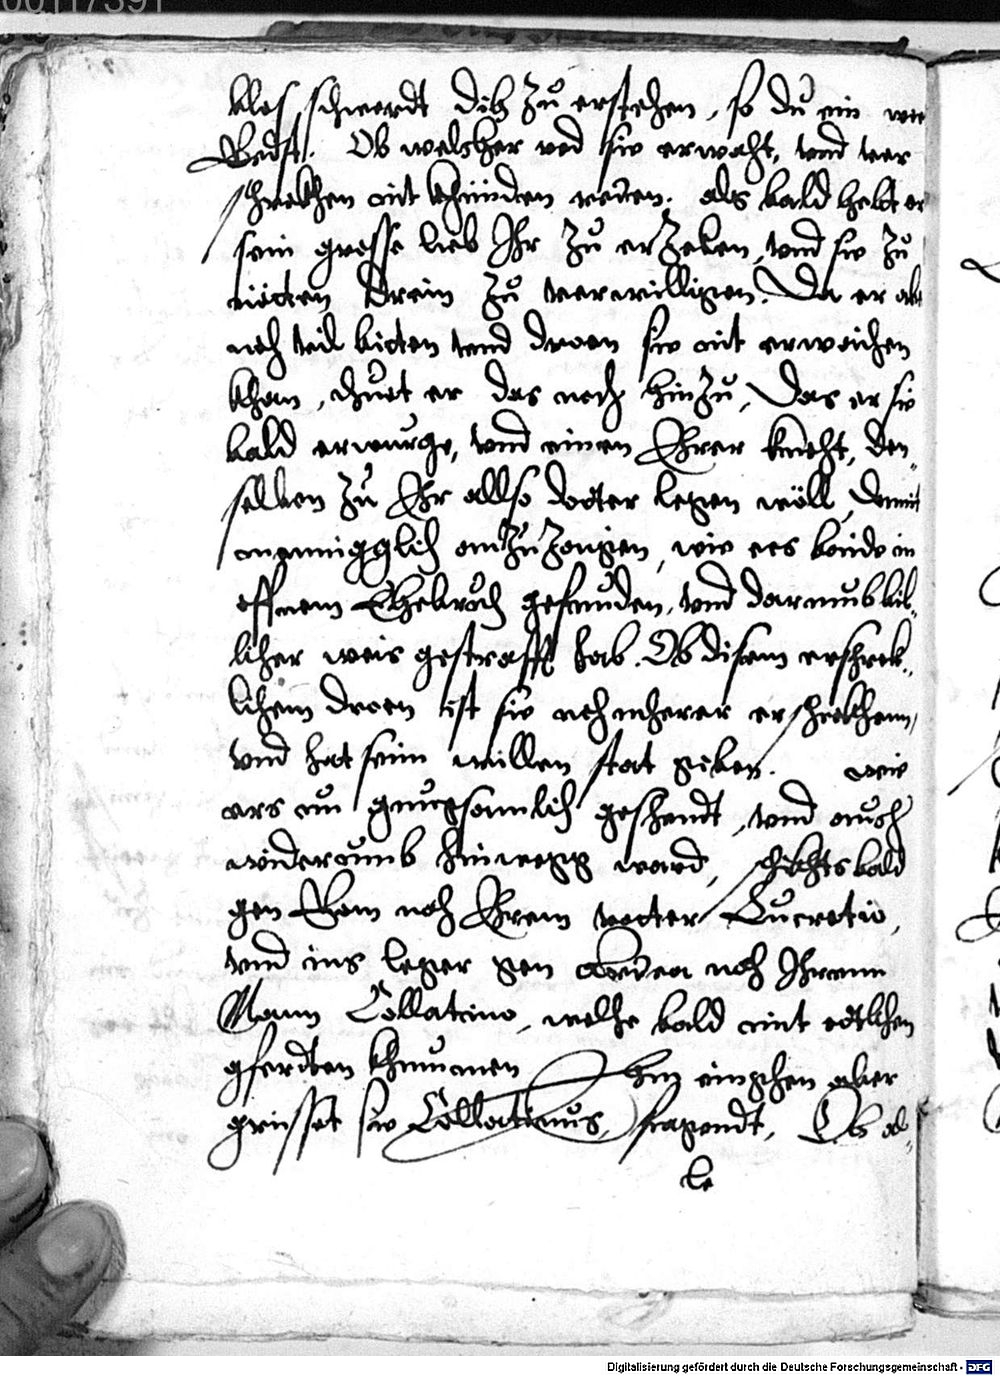 00117391
blos schwerdt dich zu erstehen, so du ein wort
Redst. Ob welcher red sie erwacht, vnd vor
schrekhen nit khünden reden. als bald hebt er
sein grosse lieb Ihr zu erzelen, vnd sie zu
nötten drein zu verwilligen. Da er aber
noch vil bitten vnd droen sie nit erweichen
kham, thuet er das noch hinzu, Das er sie
bald erwurge, vnd einen Ihrer knecht, den„
selben zu Ihr allso dotter legen wöll, damit
menniggklich anzuzeugen, wie ers beide in
offnem Ehebruch gefunden, vnd darumb bil„
licher weis gestrafft hab. Ob disem erschrek„
lichem droen ist sie noch mherer erschrekhenn,
vnd hat seim willen stat geben. wie
ers nu gnugsamlich geschendt, vnd auch
widerumb hinwegg ward, schikhts bald
gen Rom noch Ihrem vatter Lucretio,
vnd ins leger gen Ardea noch Ihrenn
Mann Collatino, welche bald mit etlichen
gferdten khummen. Im eingehen aber
griesset sie Collatinus, fragendt, Ob al„
le
Digitalisierung gefördert durch die Deutsche Forschungsgemeinschaft - DFG